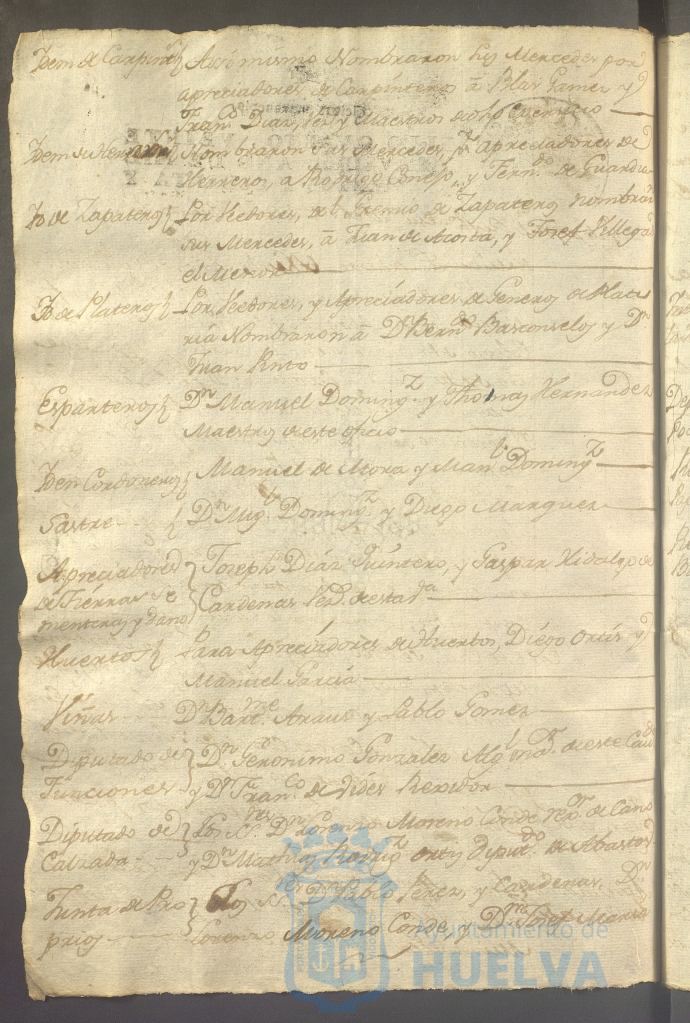 Ydem de Carpint.s Asi mismo Nombraron sus Mercedes por
apreciadores de Carpintero à Blas Gamez y
Fran.co Diaz, Maestros de dho exercicio
Ydem de Nombraron sus Mercedes, p.r apreciadores de
Herrero, a Rodrigo y Fern.do de Guardia
Yd de Zapateros Por Veedores, del Gremio de Zapateros nombraron
sus Mercedes, à Juan de Acosta, y Josef Villega
el Menor
Yd de Plateros Por Veedores, y Apreciadores de Generos de Plate
ria Nombraron à D.n Bern.do Basconselos y D.n
Juan Pinto
Esparteros D.n Manuel Doming.z y Thomas Hernandez
Maestros de este oficio
Ydem Cordoneros Manuel de Mora y Man.l Doming.z
Sastre D.n Mig.l Doming.z y Diego Marquez
Apreciadores Joseph Diaz Quintero, y Gaspar Hidalgo de
de Tierras se Cardenas Vez.s de esta
menteras y daño
Huertos Para Apreciadores de Huertos, Diego Ortis y
Manuel Garcia
Viñas D.n Bart.me Araus y Pablo Gomez
Diputado de D.n Geronimo Gonzalez de este Cav
Funciones y D.n Fran.co de Vides Rexidor
Diputado de Los SS.res D.n Lorenzo Moreno Conde de Cano
Calzada y D.n Mathias Ortiz diput.do de Abastos
Junta de Pro Los SS.res D.n Pablo Perez, y Cardenas, D.n
pios Lorenzo Moreno Conde, y D.n Josef Maria
Ayuntamiento de
HUELVA